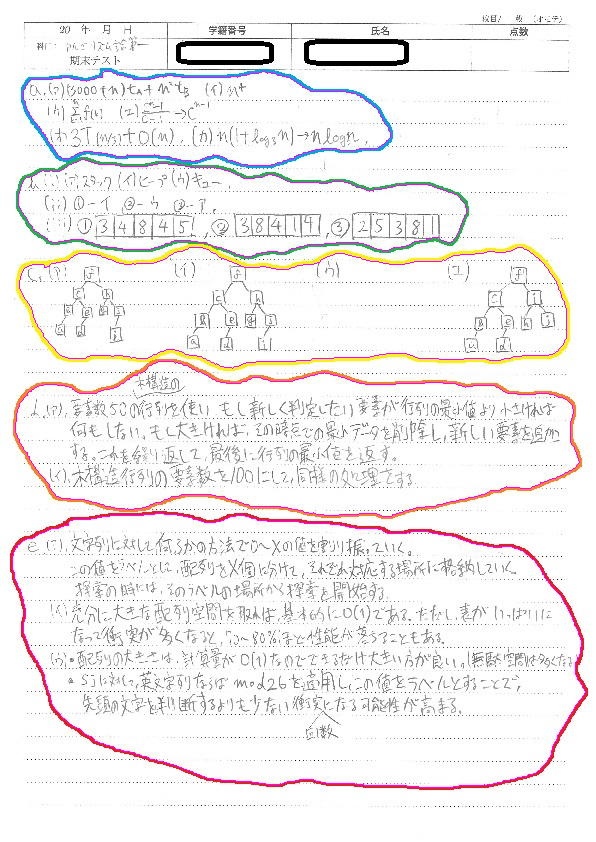 枚目/ 枚 (オモテ)
20 年 月 日 学籍番号 氏名 点数
科目: アルゴリズム論第一
期末テスト
a. (ア) (3000+n)ta+n²tB (イ) n⁴
(オ) 3T(n/3)+O(n), (カ) n(1+log₃n)→nlogn,
b. (i) (ア)スタック (イ)ヒープ (ウ)キュー,
(ii) ①-イ ②-ウ ③-ア,
(iii) ① 3 4 8 4 5, ② 3 8 4 1 4, ③ 2 5 3 8 1
c. (ア) (イ) (ウ) (エ)
木構造の
d. (ア), 要素数50の行列を使い もし新しく判定したい要素が行列の最小値より小さければ
何もしない。もし大きければ、その時点での最小データを削除し、新しい要素を追加
する。これを繰り返して、最後に行列の最小値を返す。
(イ), 木構造行列の要素数を100にして、同様の処理をする。
e. 文字列に対して何らかの方法で0~Xの値を割り振っていく。
この値をラベルにし、配列をX個に分けて、それぞれ対応する場所に格納していく。
探索の時には、そのラベルの場所から探索を開始する。
充分に大きな配列空間を取れば、基本的にO(1)である。ただし、表がいっぱいに
なって衝突が多くなると、70~80%ほど性能が落ちることもある。
・配列の大きさは、計算量がO(1)なのでできるだけ大きい方が良い。(無駄な空間は多くなる
・Sjに対して、英文字列ならば mod26を適用し、この値をラベルとすることで、
先頭の文字を判断するよりも少ない衝突になる可能性が高まる。
回数